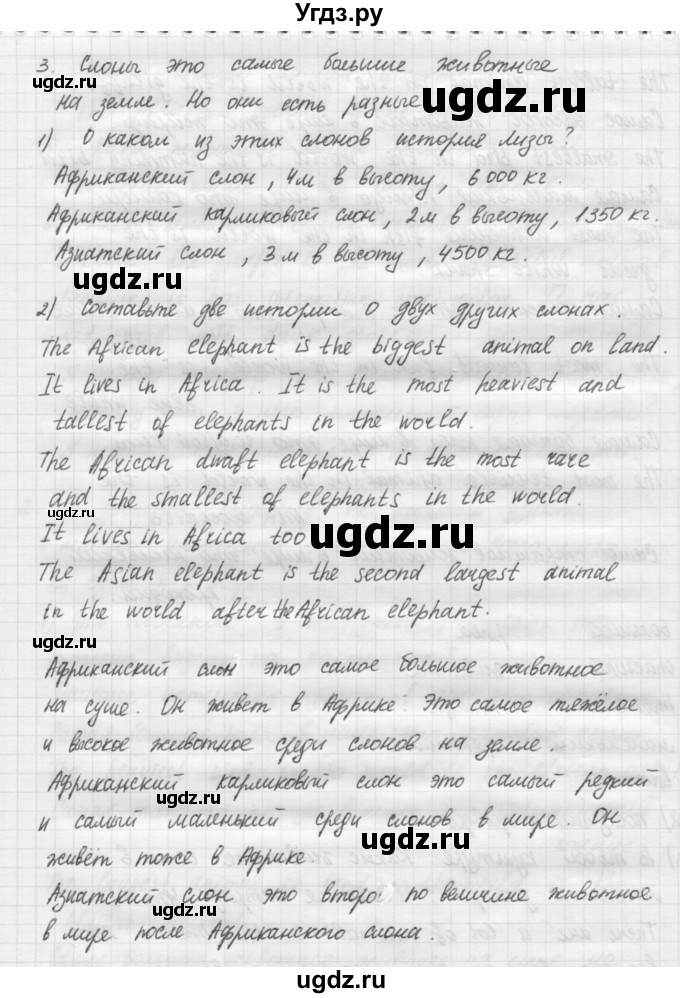 Угдз.ру
3. Слоны это самые большие животные
ugdz.ru
на земле. Но они есть разные
ugdz.ru
1) О каком из этих слонов история Лизы?
Африканский слон, 4м в высоту, 6000 кг.
Африканский карликовый слон, 2м в высоту, 1350 кг.
Азиатский слон, 3 м в высоту, 4500 кг.
ugdz.ru
2) Составьте две истории о двух других слонах.
The African elephant is the biggest animal on land.
It lives in Africa. It is the most heaviest and
tallest of elephants in the world.
The African dwaft elephant is the most rare
and the smallest of elephants in the world.
It lives in Africa too
ugdz.ru
The Asian elephant is the second largest animal
in the world after the African elephant.
ugdz.ru
Африканский слон это самое большое животное
на суше. Он живет в Африке. Это самое тяжёлое
и высокое животное среди слонов на земле.
Африканский карликовый слон это самый редкий
ugdz.ru
и самый маленький среди слонов в мире. Он
ugdz.ru
живёт тоже в Африке
Азиатский слон это второ по величине животное
ugdz.ru
в мире после Африканского слона.
ugdz.ru